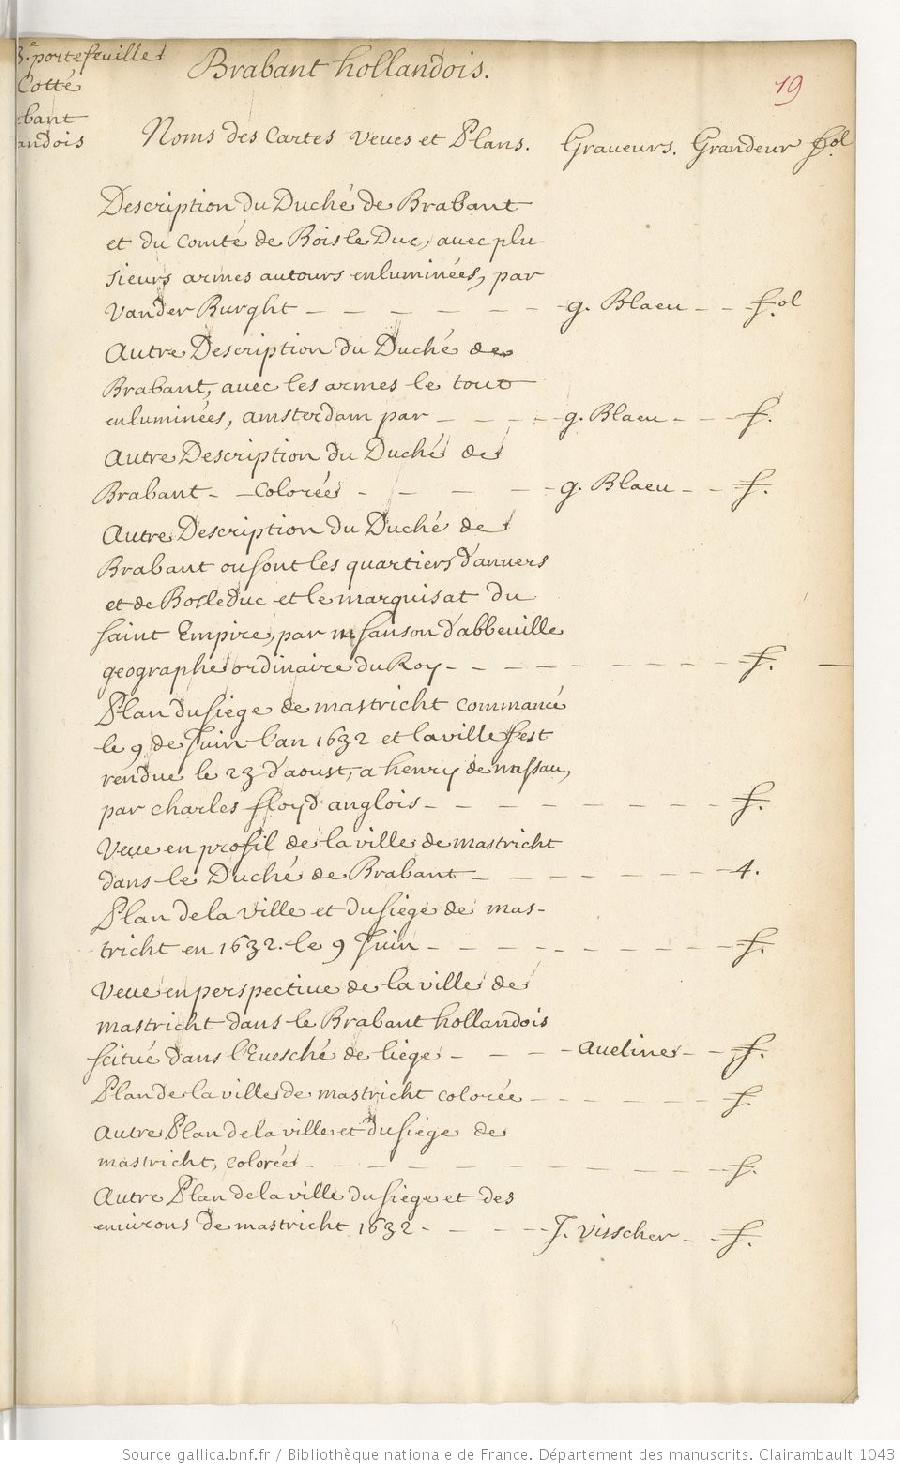 3.e portefeuille
Cotté
bant
andois
Brabant hollandois.
19
Noms des Cartes Veues et Plans. Graveurs. Grandeur fol
Description du Duché de Brabant
et du Comté de Bois le Duc, avec plu
sieurs armes autours enluminées, par
Vander Burght - - - - - - g. Blaeu - - f.ol
Autre Description du Duché de
Brabant, avec les armes le tout
enluminées, amsterdam par - - - - g. Blaeu - - f.
Autre Description du Duché de
Brabant - - Colorée - - - - g. Blaeu - - f.
Autre Description du Duché de
Brabant ou sont les quartiers d'anvers
et de Bosleduc et le marquisat du
saint Empire, par m sanson d'abbeville
geographe ordinaire du Roy - - - - - - - - f. -
Plan du siege de mastricht commancé
le 9 de Juin l'an 1632 et la ville s'est
rendue le 23 d'aoust, a henry de nassau,
par charles floyd anglois - - - - - - - - f.
Veue en profil de la ville de mastricht
dans le Duché de Brabant - - - - - - - 4.
Plan de la Ville et du siege de mas-
tricht en 1632. le 9 Juin - - - - - - - - f.
Veue en perspective de la ville de
mastricht dans le Brabant hollandois
scitué dans l'Evesché de liege - - - - aveline - - f.
Plan de la ville de mastricht colorée - - - - - - f.
Autre Plan de la ville et du siege de
mastricht, colorée - - - - - - - - f.
Autre Plan de la ville du siege et des
environs de mastricht 1632 - - - - J. Visscher - - f.
Source gallica.bnf.fr / Bibliothèque nationale de France. Département des manuscrits. Clairambault 1043